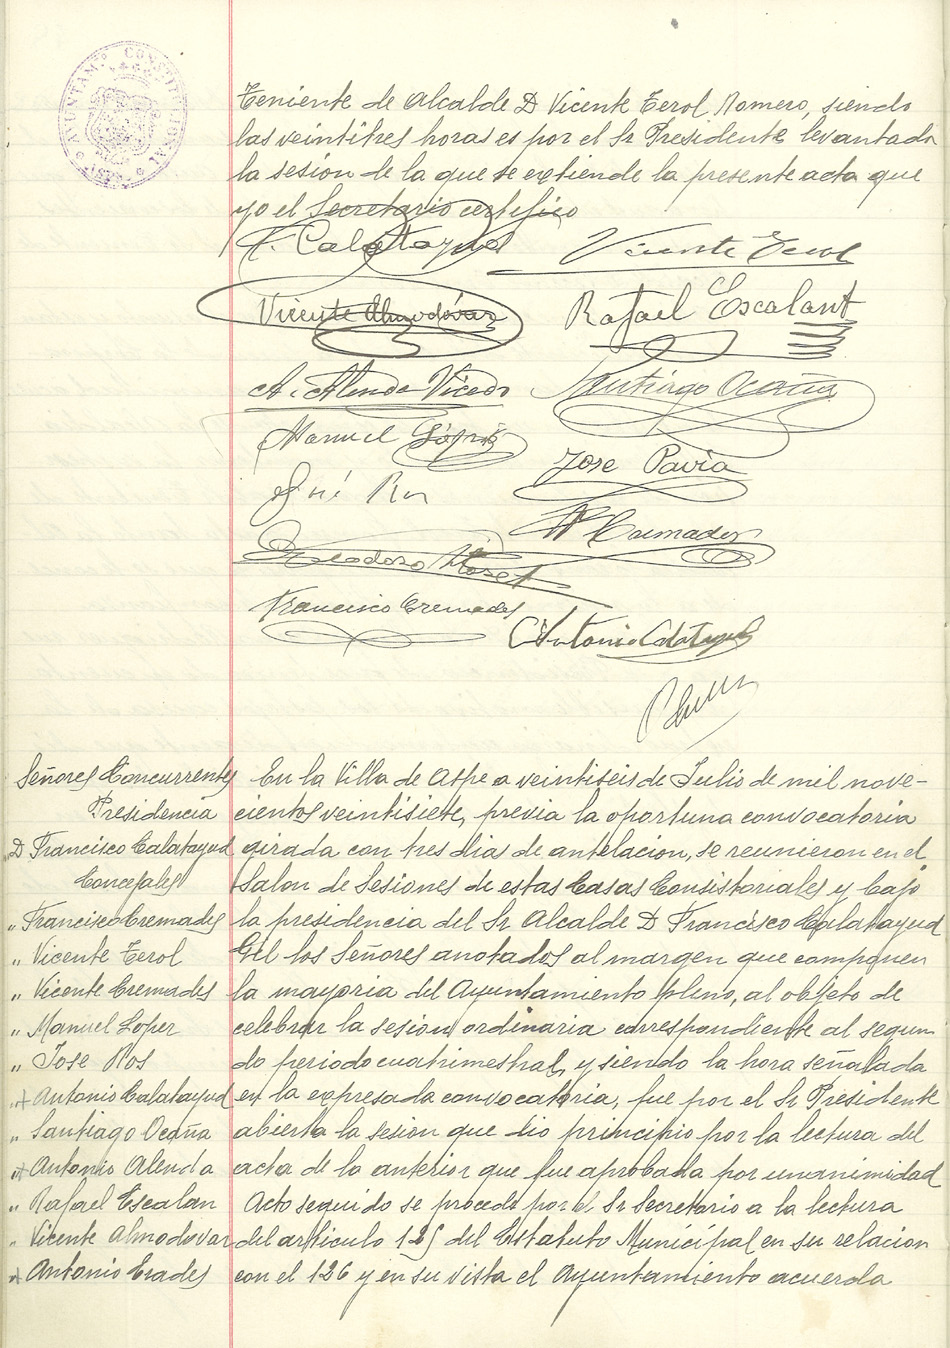 AYUNTAMTO CONSTITUCIONAL
Teniente de Alcalde D Vicente Cerol Romero, siendo
las veintitres horas es por el Sr Presidente levantada
la sesion de la que se extiende la presente acta que
yo el Secretario certifico
F. Calatayud
Vicente Cerol
Vicente Almodóvar
Rafael Escalant
A. Alenda Vicedo
Santiago Ocaña
Manuel López
Jose Pavia
José Ros
Cremades
Teodoro Aloset
Francisco Cremades
Antonio Calatayud
Señores Concurrentes
Presidencia
D Francisco Calatayud
Concejales
" Francisco Cremades
" Vicente Cerol
" Vicente Cremades
" Manuel Lopez
" Jose Ros
" + Antonio Calatayud
" Santiago Ocaña
" + Antonio Alenda
" Rafael Escalan
" Vicente Almodovar
" + Antonio Erades
En la Villa de Aspe a veintiseis de Julio de mil nove-
cientos veintisiete, previa la oportuna convocatoria
girada con tres dias de antelacion, se reunieron en el
Salon de Sesiones de estas Casas Consistoriales y bajo
la presidencia del Sr Alcalde D Francisco Calatayud
Gil los Señores anotados al margen que componen
la mayoria del Ayuntamiento pleno, al objeto de
celebrar la sesion ordinaria correspondiente al segun
do periodo cuatrimestral, y siendo la hora señalada
en la expresada convocatoria, fue por el Sr Presidente
abierta la sesion que dio principio por la lectura del
acta de la anterior que fue aprobada por unanimidad
Acto seguido se procede por el Sr Secretario a la lectura
del articulo 125 del Estatuto Municipal en su relacion
con el 126 y en su vista el Ayuntamiento acuerda